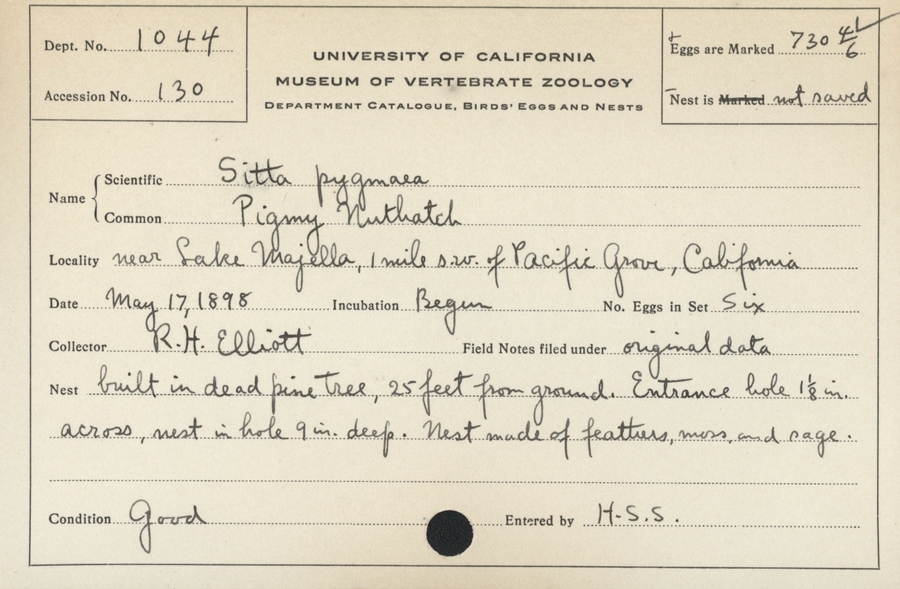 Dept. No. 1044
Accession No. 130
UNIVERSITY OF CALIFORNIA
MUSEUM OF VERTEBRATE ZOOLOGY
DEPARTMENT CATALOGUE, BIRDS' EGGS AND NESTS
Eggs are Marked 730 4/6
Nest is Marked not saved
Name { Scientific Sitta pygmaea
Common Pigmy Nuthatch
Locality near Lake Majella, 1 mile s.w. of Pacific Grove, California
Date May 17, 1898 Incubation Begun No. Eggs in Set Six
Collector R.H. Elliott Field Notes filed under original data
Nest built in dead pine tree, 25 feet from ground. Entrance hole 1⅛ in.
across, nest in hole 9 in. deep. Nest made of feathers, moss, and sage.
Condition Good Entered by H.S.S.